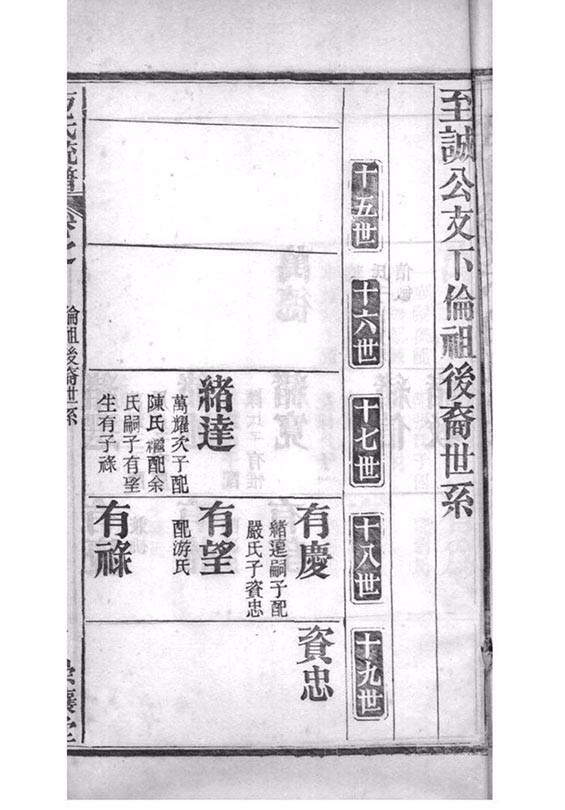 至誠公支下倫祖後裔世系
十五世
十六世
十七世
十八世
十九世
有慶
緒達嗣子配
嚴氏子資忠
資忠
緒達
萬耀次子配
陳氏繼配余
氏嗣子有望
生有子祿
有望
配游氏
有祿
氏統譜
倫祖後裔世系